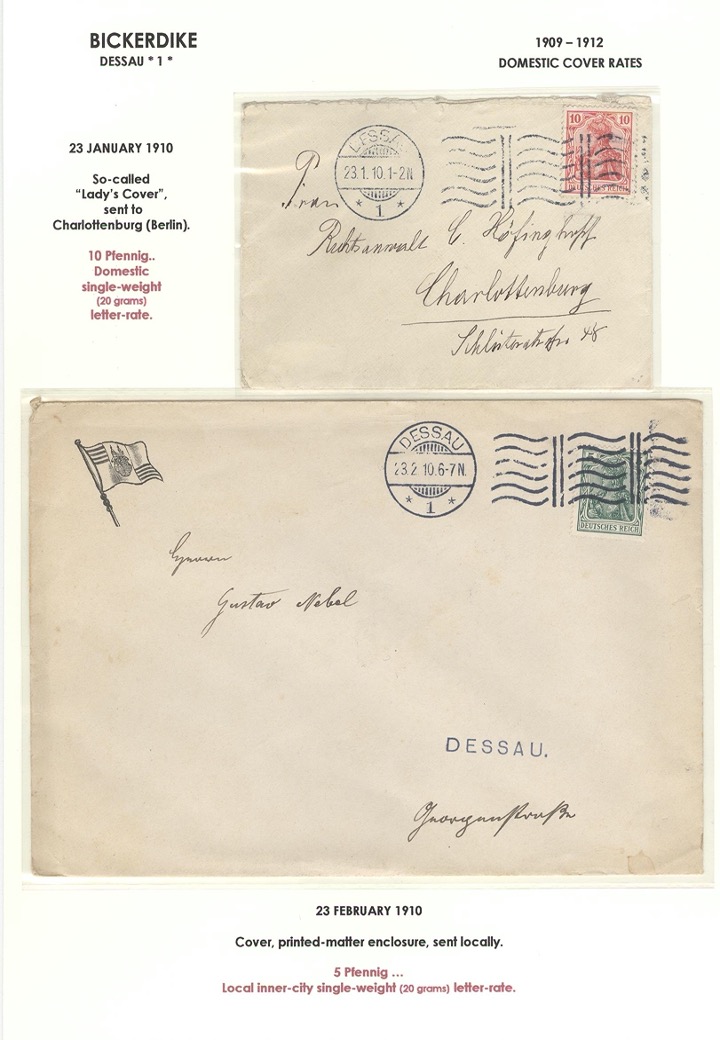 BICKERDIKE
DESSAU * 1 *
1909 – 1912
DOMESTIC COVER RATES
23 JANUARY 1910
So-called
"Lady's Cover",
sent to
Charlottenburg (Berlin).
10 Pfennig..
Domestic
single-weight
(20 grams)
letter-rate.
DESSAU
23.1.10.1-2N
* 1 *
10 10
DEUTSCHES REICH
Frau
Rechtsanwalt C. Höfinghoff
Charlottenburg
Schlüterstraße 48
DESSAU
23.2.10.6-7N.
* 1 *
DEUTSCHES REICH
Herrn
Gustav Nebel
DESSAU.
Georgenstraße
23 FEBRUARY 1910
Cover, printed-matter enclosure, sent locally.
5 Pfennig ...
Local inner-city single-weight (20 grams) letter-rate.